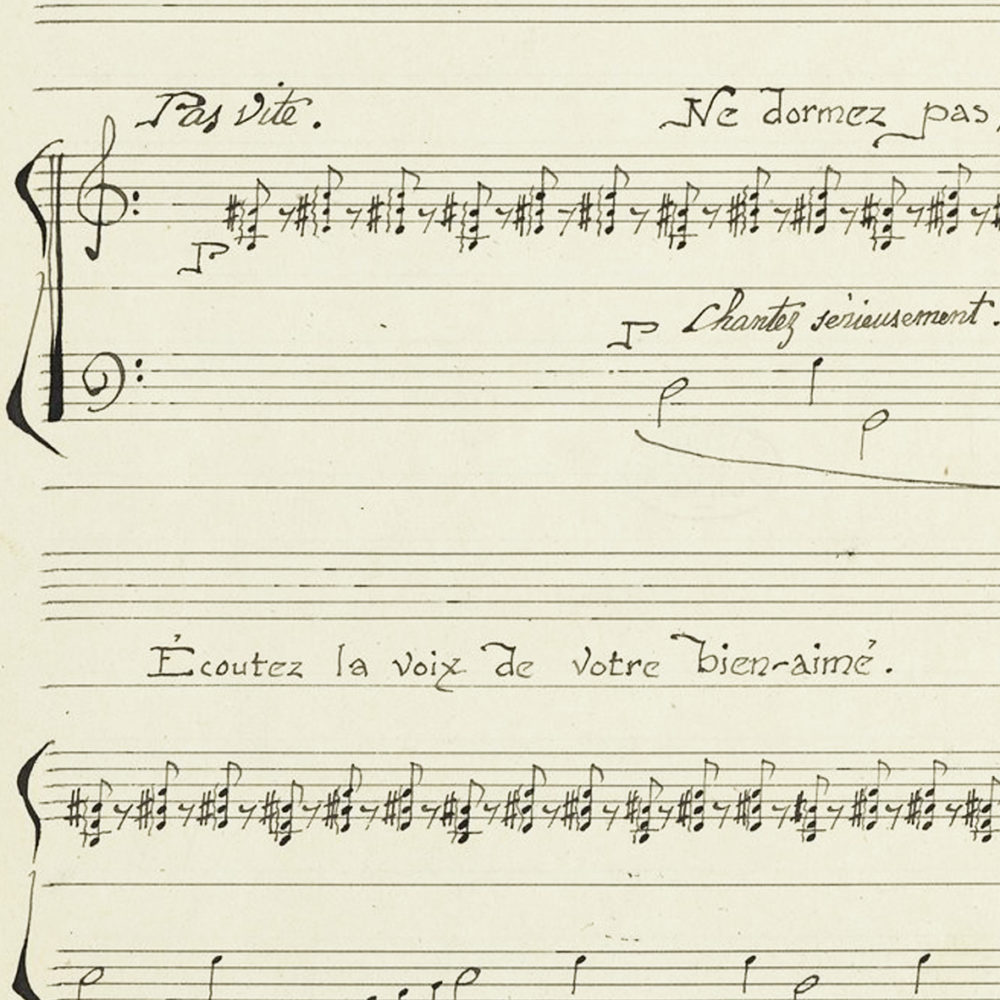 Pas vite. Ne dormez pas,
P
P Chantez sérieusement.
Écoutez la voix de votre bien-aimé.